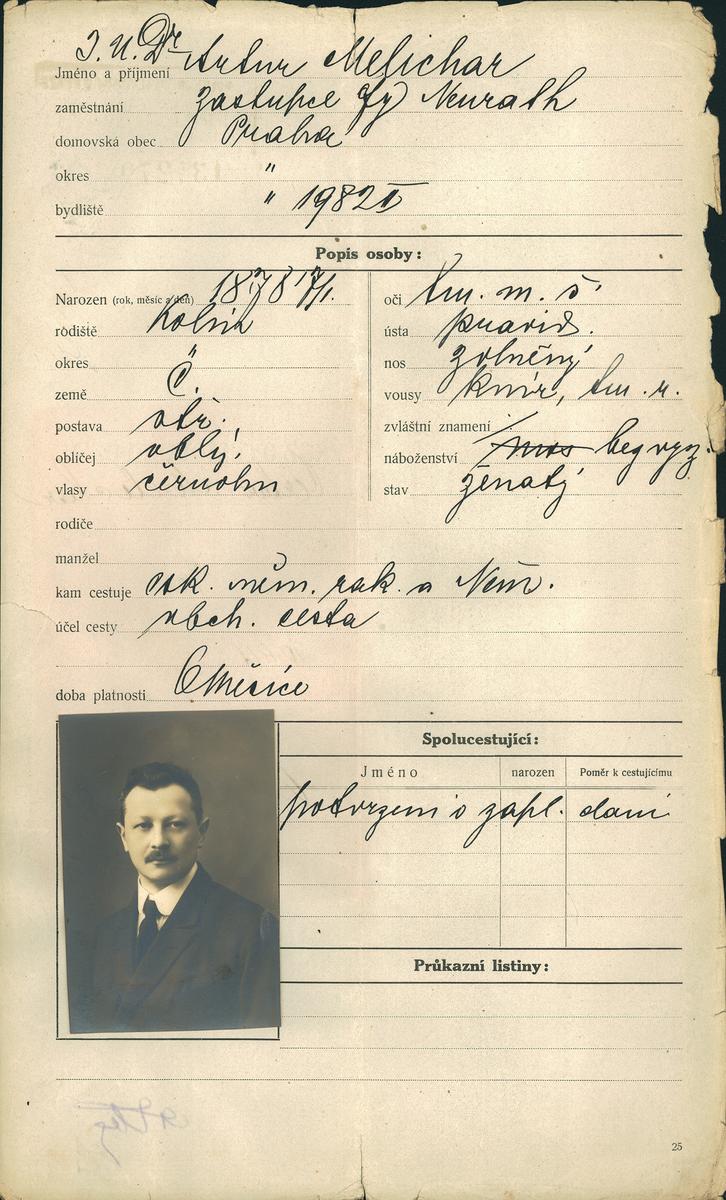 J. U. Dr
Jméno a přijmení Artur Melichar
zaměstnání zástupce fy Neurath
domovská obec Praha
okres "
bydliště " 1982 II
Popis osoby:
Narozen (rok, měsíc a den)
rodiště Kolín
okres "
země Č.
postava stř.,
obličej oblý,
vlasy černohn
oči tm. m. š.
ústa pravid.
nos
vousy knír, tm. r.
zvláštní znamení
náboženství bez vyz.
stav ženatý
rodiče
manžel
kam cestuje něm. rak. a Něm.
účel cesty obch. cesta
doba platnosti 6 měsíce
Spolucestující:
Jméno narozen Poměr k cestujícímu
potvrzeni o zapl. dani
Průkazní listiny:
25